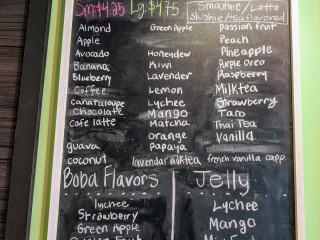 Sm:$4.25 Lg:$4.75
Smoothie/Latte
Slushie/tea flavored
Almond
Apple
Avocado
Banana
Blueberry
Coffee
Cantaloupe
Chocolate
Cafe latte
guava
coconut
Green Apple
Honeydew
Kiwi
Lavender
Lemon
Lychee
Mango
Matcha
orange
Papaya
lavendar milktea
Passion fruit
Peach
Pineapple
Purple Oreo
Raspberry
Milktea
Strawberry
Taro
Thai Tea
Vanilla
french vanilla capp.
Boba Flavors
lychee
Strawberry
Green Apple
Jelly
Lychee
Mango